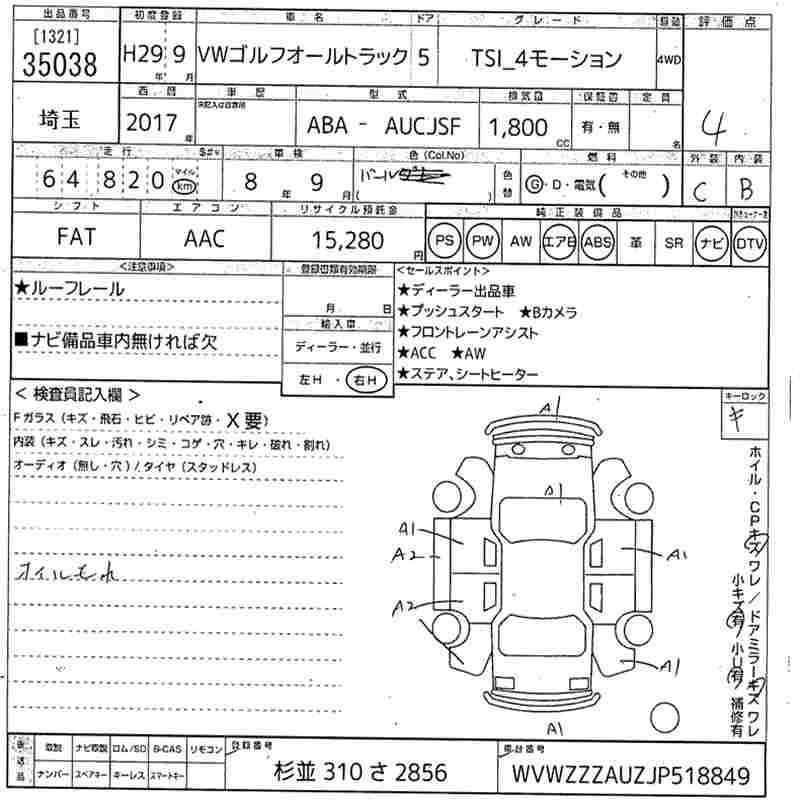 出品番号 初度登録 車名 ドア グレード 評価点
[1321]
35038 H29年 9月 VWゴルフオールトラック 5 TSI_4モーション 4WD
埼玉 西暦 車歴 型式 排気量 保証書 定員
2017年 ABA - AUCJSF 1,800CC 有・無 名 4
走行 車検 色(Col.No) 色替 燃料 外装 内装
64820 マイル km 8年 9月 パール ( ) G・D・電気( その他 ) C B
シフト エアコン リサイクル預託金 純正装備品
FAT AAC 15,280円 PS PW AW エアB ABS 革 SR ナビ DTV
<注意事項> 登録書類有効期限 <セールスポイント>
★ルーフレール 月 日 ★ディーラー出品車
★プッシュスタート ★Bカメラ
輸入車 ★フロントレーンアシスト
■ナビ備品車内無ければ欠 ディーラー・並行 ★ACC ★AW
左H・右H ★ステア、シートヒーター
<検査員記入欄> キーロック
キ
Fガラス(キズ・飛石・ヒビ・リペア跡・X要)
内装(キズ・スレ・汚れ・シミ・コゲ・穴・キレ・破れ・割れ)
オーディオ(無し・穴)/タイヤ(スタッドレス)
オイルもれ
A1
A1
A1
A2
A1
A2
A1
A1
ホイル・CPキズワレ/ドアミラーキズワレ
小キズ有/小U有/補修有
後送品 取説 ナビ取説 ロム/SD B-CAS リモコン 登録番号 車台番号
ナンバー スペアキー キーレス スマートキー 杉並 310 さ 2856 WVWZZZAUZJP518849